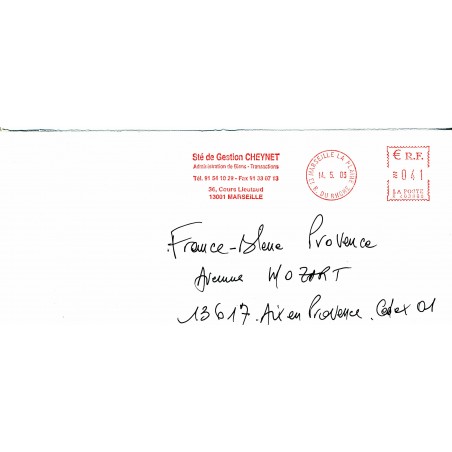 Sté de Gestion CHEYNET
Administration de Biens - Transactions
Tél. 91 54 10 29 - Fax 91 33 67 13
36, Cours Lieutaud
13001 MARSEILLE
13 MARSEILLE LA PLAINE
14. 5. 03
B. DU RHONE
€ R.F.
041
LA POSTE
France-Bleue Provence
Avenue MOZART
13617. Aix en Provence. Cedex 01